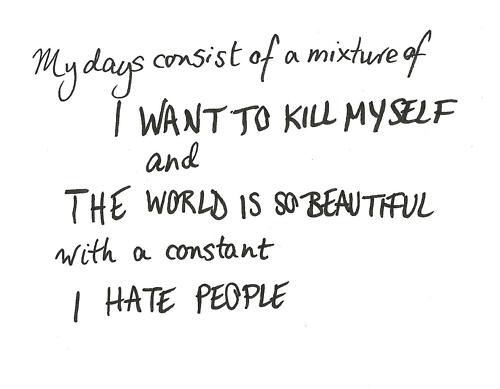 My days consist of a mixture of
I WANT TO KILL MYSELF
and
THE WORLD IS SO BEAUTIFUL
with a constant
I HATE PEOPLE